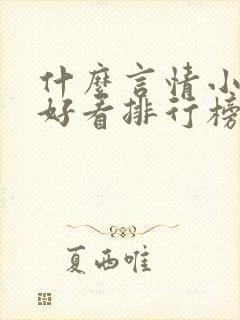 什麼言情小
好看排行榜
夏西唯